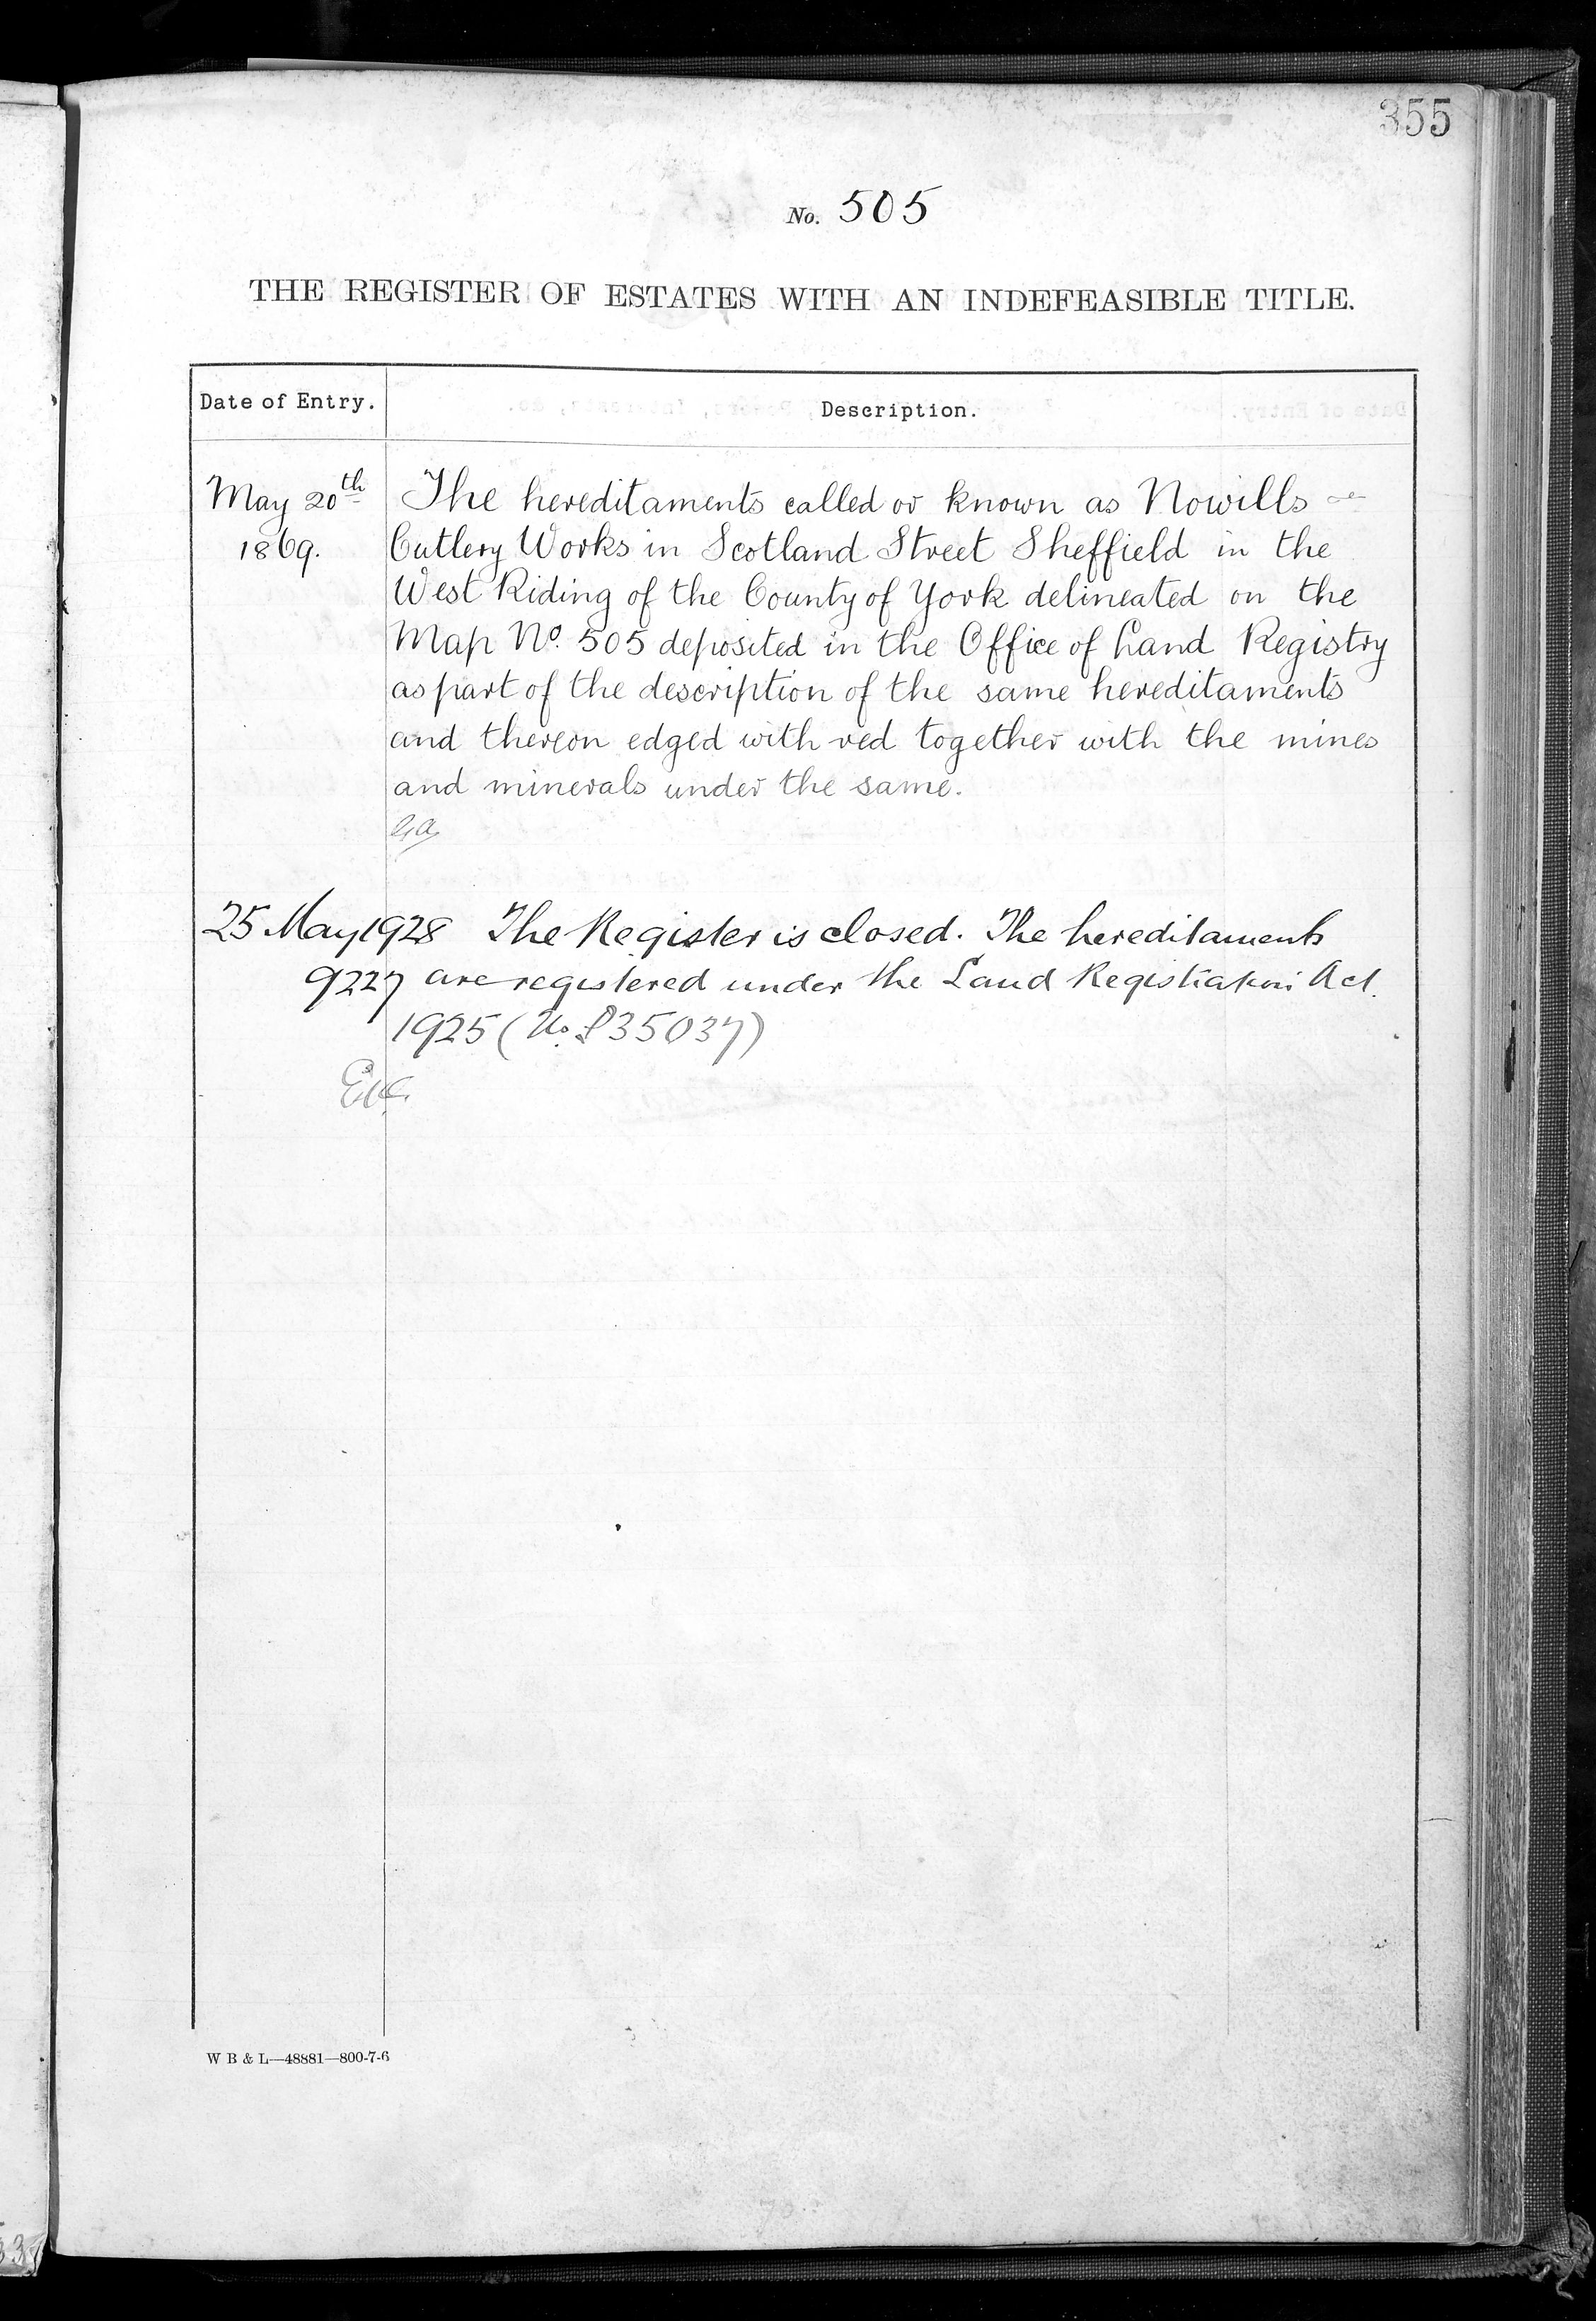 355
No. 505
THE REGISTER OF ESTATES WITH AN INDEFEASIBLE TITLE.
Date of Entry. Description.
May 20th The hereditaments called or known as Nowills
1869. Cutlery Works in Scotland Street Sheffield in the
West Riding of the County of York delineated on the
Map No. 505 deposited in the Office of Land Registry
as part of the description of the same hereditaments
and thereon edged with red together with the mines
and minerals under the same.
25 May 1928 The Register is closed. The hereditaments
9227 are registered under the Land Registration Act.
1925 (No. P35037)
W B & L—48881—800-7-6